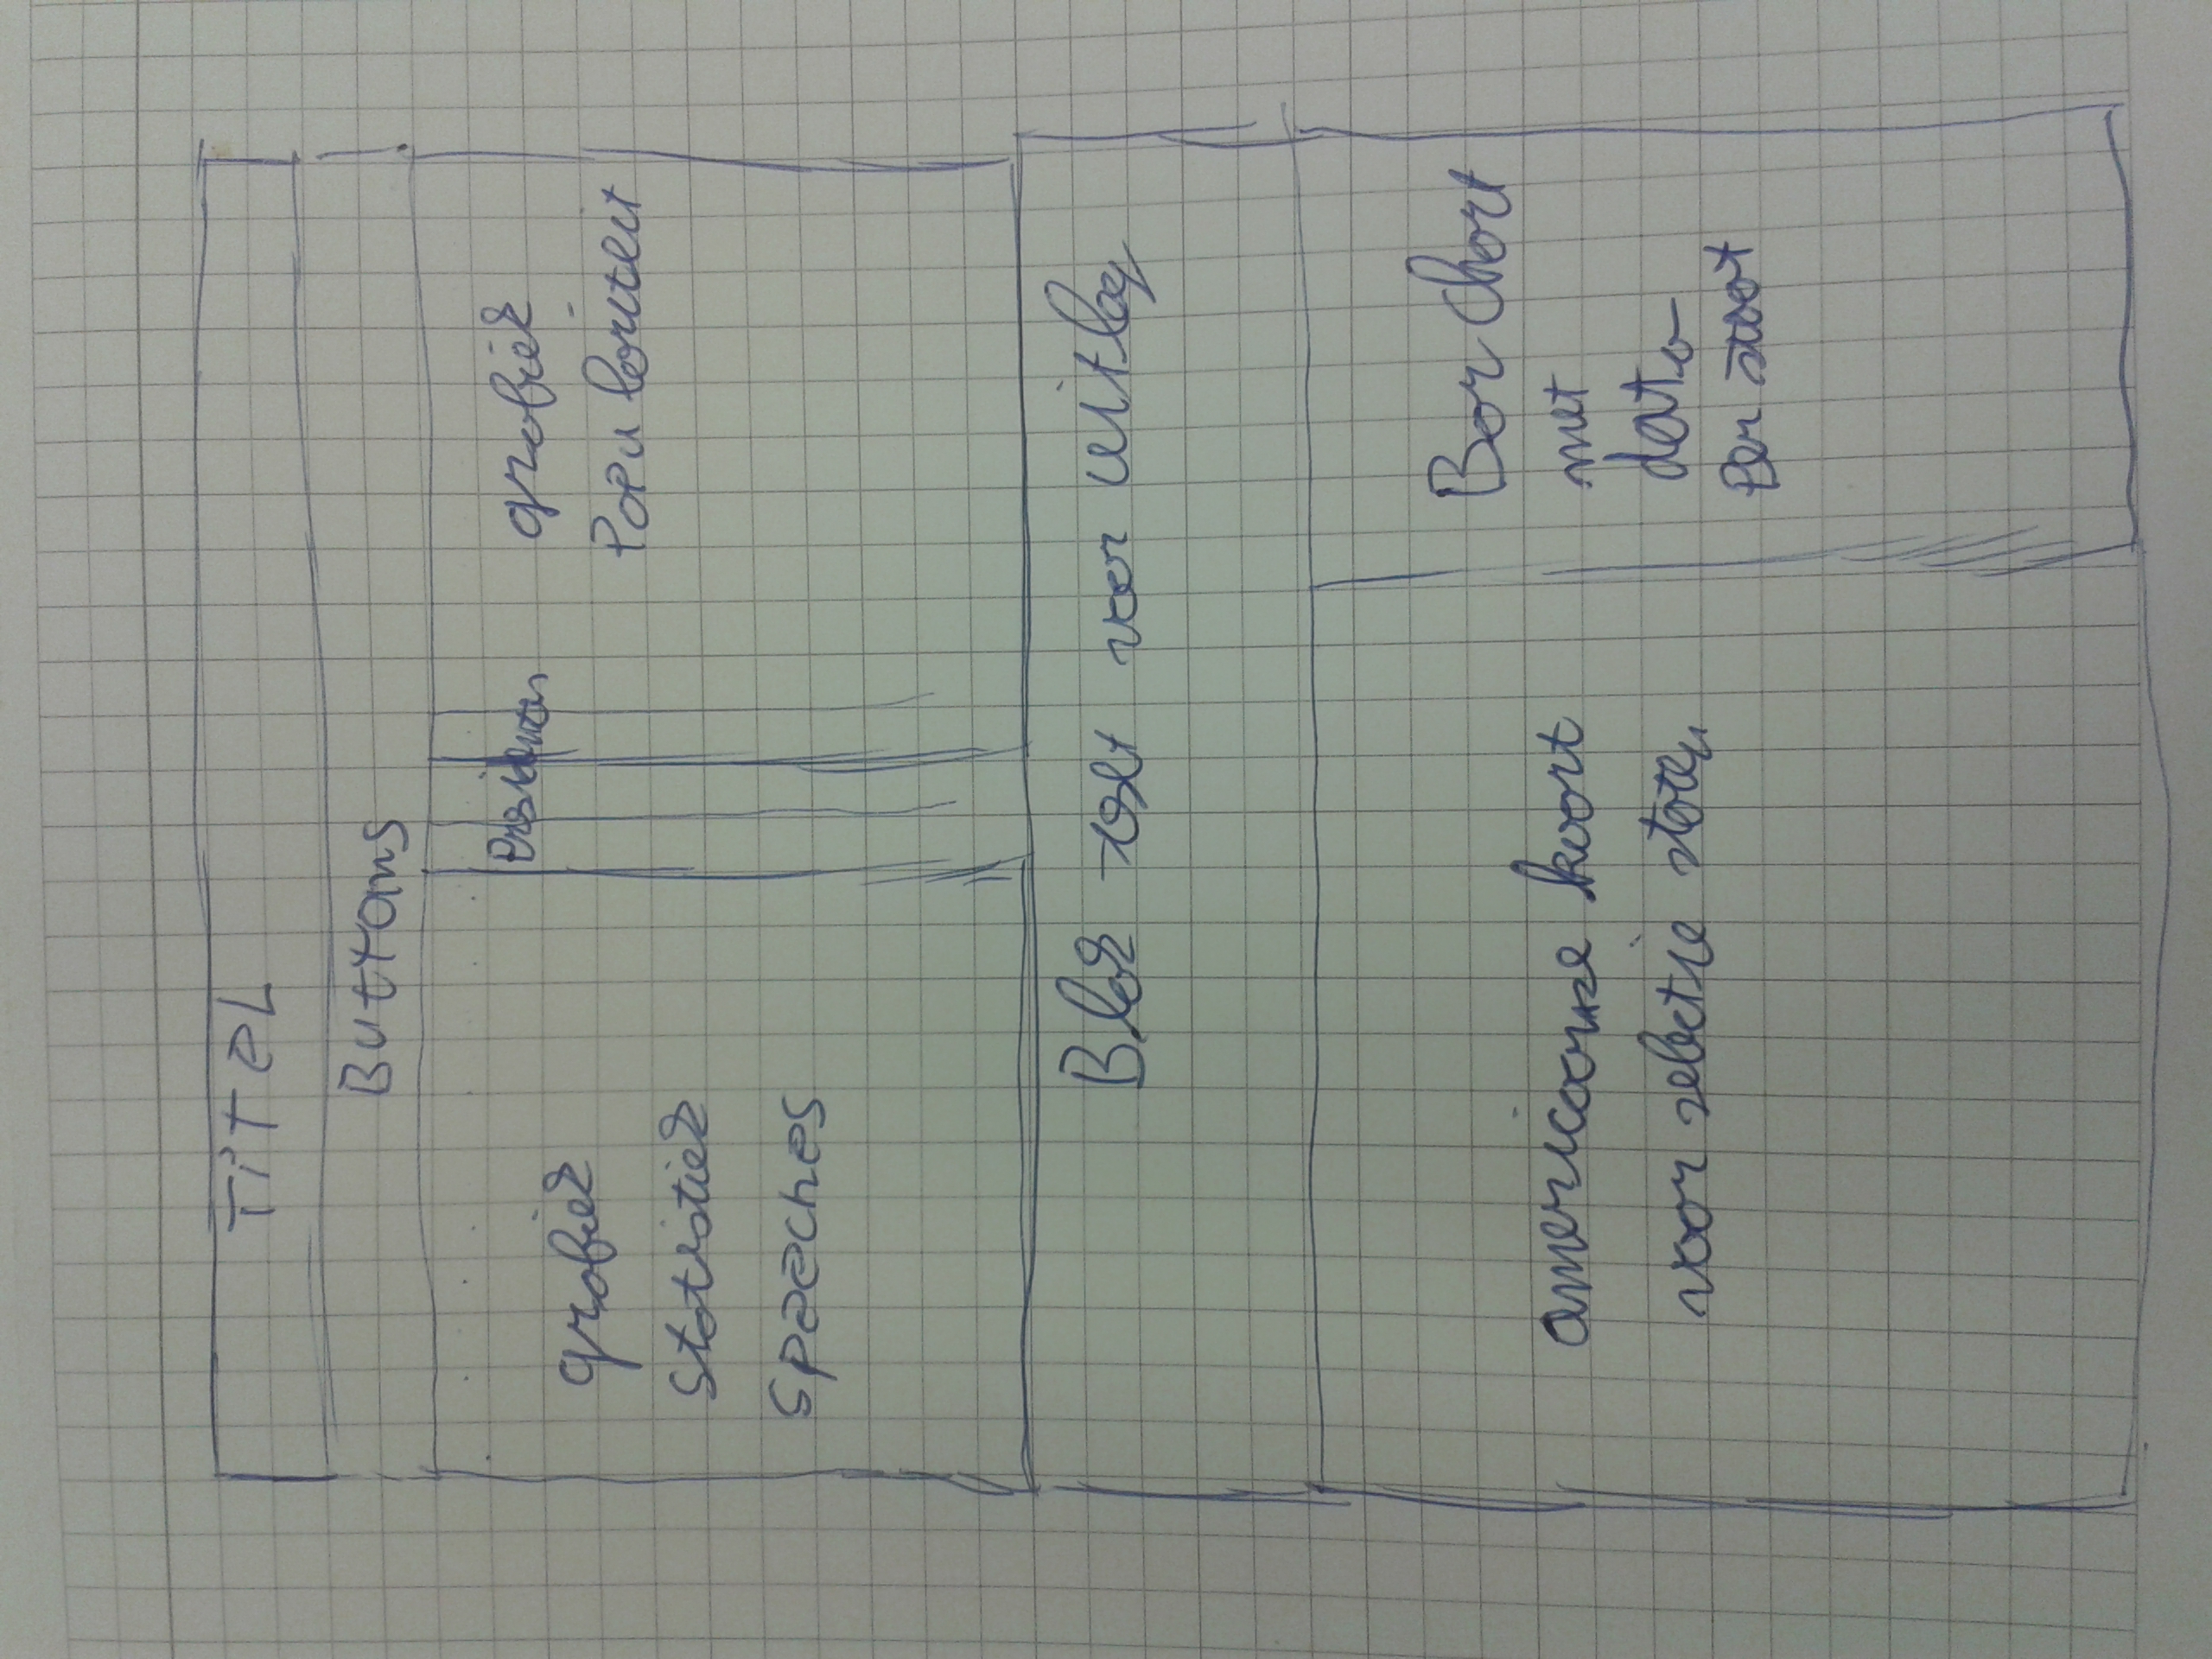 Titel
Buttons
grafiek
Statistiek
Speeches
Presidenten
grafiek
Populariteit
Blok text voor uitleg
amerikaanse kaart
voor selectie staten
Bar chart
met
data
Per staat